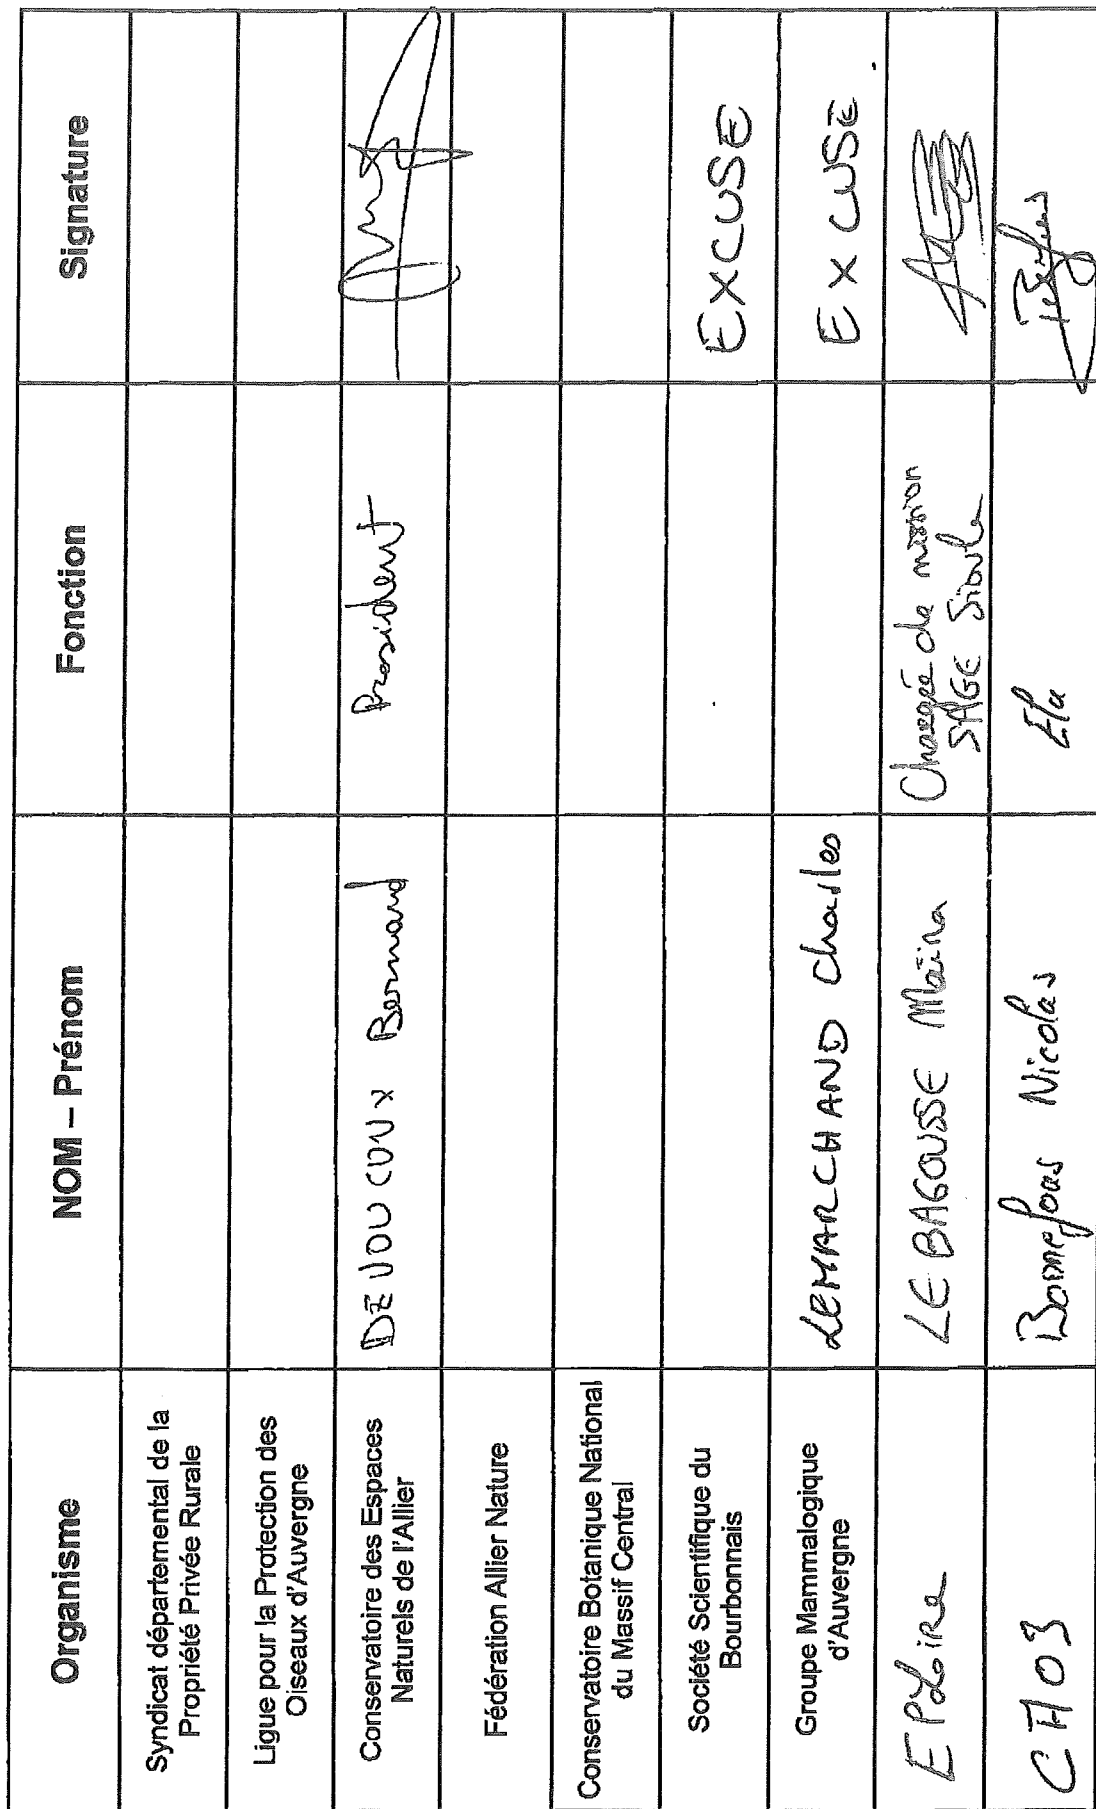 Organisme NOM – Prénom Fonction Signature
Syndicat départemental de la
Propriété Privée Rurale
Ligue pour la Protection des
Oiseaux d'Auvergne
Conservatoire des Espaces
Naturels de l'Allier
DEJOUCOUX Bernard Président
Fédération Allier Nature
Conservatoire Botanique National
du Massif Central
Société Scientifique du
Bourbonnais
EXCUSE
Groupe Mammalogique
d'Auvergne
LEMARCHAND Charles EXCUSE
EPLoire LE BAGOUSSE Maïna Chargée de mission
SAGE Sioule
CA03 Bonnefous Nicolas Elu